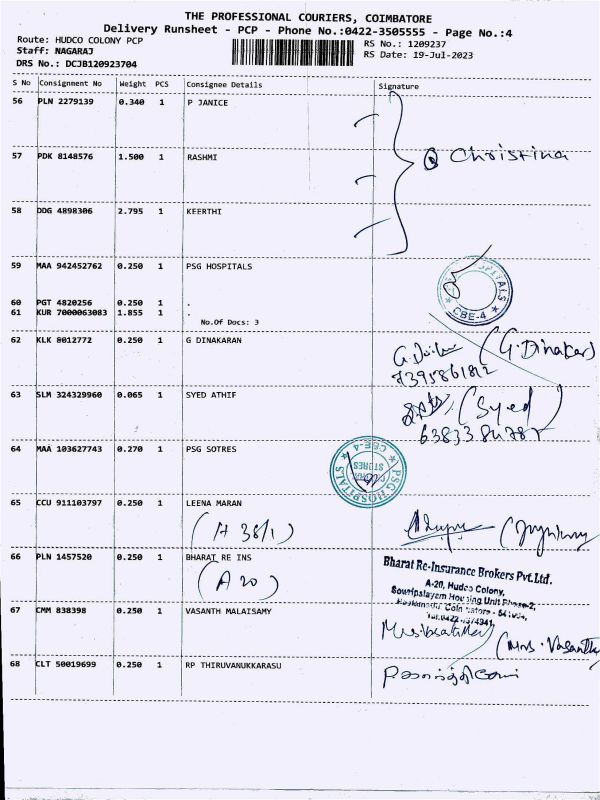 THE PROFESSIONAL COURIERS, COIMBATORE
Delivery Runsheet - PCP - Phone No.:0422-3505555 - Page No.:4
Route: HUDCO COLONY PCP
RS No.: 1209237
Staff: NAGARAJ
RS Date: 19-Jul-2023
DRS No.: DCJB120923704
S No Consignment No Weight PCS Consignee Details Signature
56 PLN 2279139 0.340 1 P JANICE
57 PDK 8148576 1.500 1 RASHMI Christina
58 DDG 4898306 2.795 1 KEERTHI
59 MAA 942452762 0.250 1 PSG HOSPITALS
CBE-4
60 PGT 4820256 0.250 1 .
61 KUR 7000063083 1.855 1 .
No.Of Docs: 3
62 KLK 8012772 0.250 1 G DINAKARAN
(G.Dinakar)
63 SLM 324329960 0.065 1 SYED ATHIF
(Syed)
64 MAA 103627743 0.270 1 PSG SOTRES
PSG HOSPITALS STORES CBE-4
65 CCU 911103797 0.250 1 LEENA MARAN
(A 38/1)
66 PLN 1457520 0.250 1 BHARAT RE INS
(A 20)
Bharat Re-Insurance Brokers Pvt.Ltd.
A-20, Hudco Colony,
Sowripalayem Housing Unit Phase-2,
67 CMM 838398 0.250 1 VASANTH MALAISAMY
(Mrs. Vasantha
68 CLT 50019699 0.250 1 RP THIRUVANUKKARASU